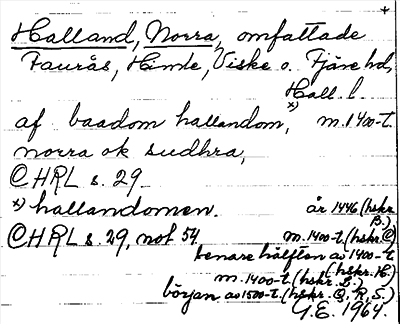 Halland, Norra, omfattade
Faurås, Himle, Viske o. Fjäre hd,
Hall. l.
af baadom hallandom, x) m. 1400-t.
norra ok sudhra,
© HRL s. 29
x) hallandomen. år 1446 (hskr B.)
© HRL s. 29, not 54 m. 1400-t. (hskr. ©)
senare hälften av 1400-t (hskr. H.)
m. 1400-t. (hskr. L.)
början av 1500-t. (hskr. Q, R, S.)
G.E. 1964.